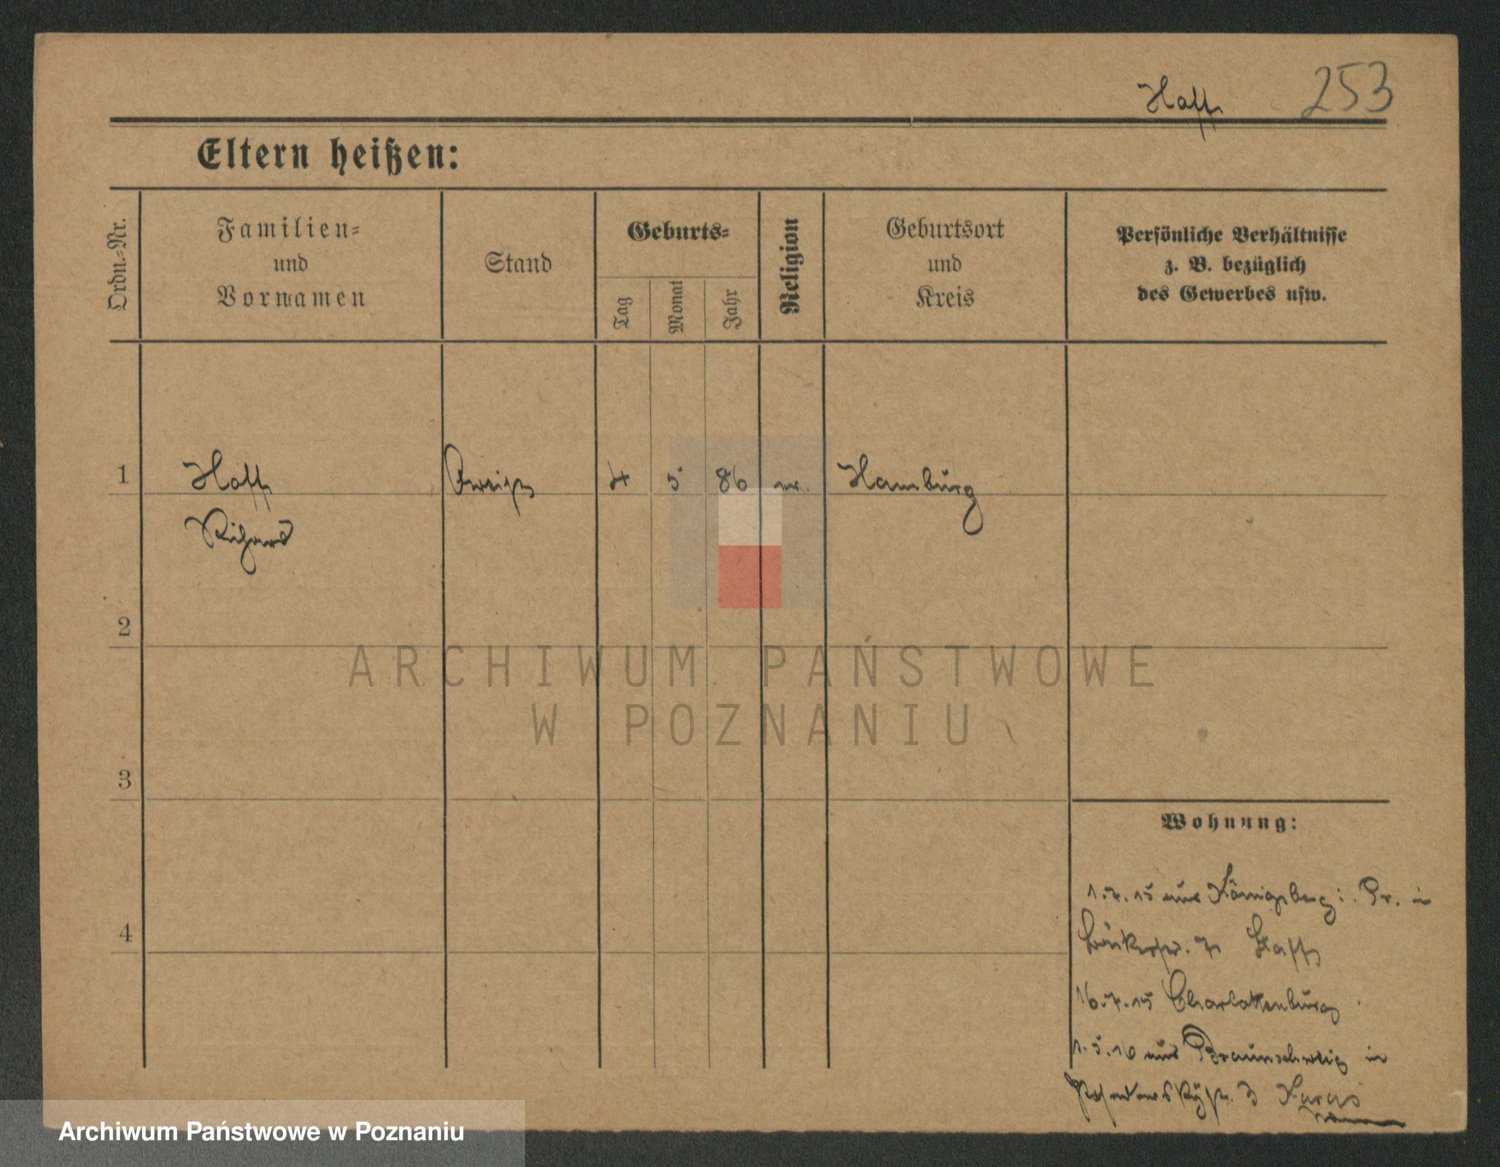 253
Eltern heißen:
Ordn.-Nr.
Familien-
und
Vornamen
Stand
Geburts-
Tag
Monat
Jahr
Religion
Geburtsort
und
Kreis
Persönliche Verhältnisse
z. B. bezüglich
des Gewerbes usw.
1
4 5 86 Hamburg
Richard
2
ARCHIWUM PAŃSTWOWE
W POZNANIU
3
Wohnung:
1.7.15 aus Königsberg i. Pr. in
4
16.7.15 Charlottenburg
1.5.16 aus Braunschweig in
Archiwum Państwowe w Poznaniu